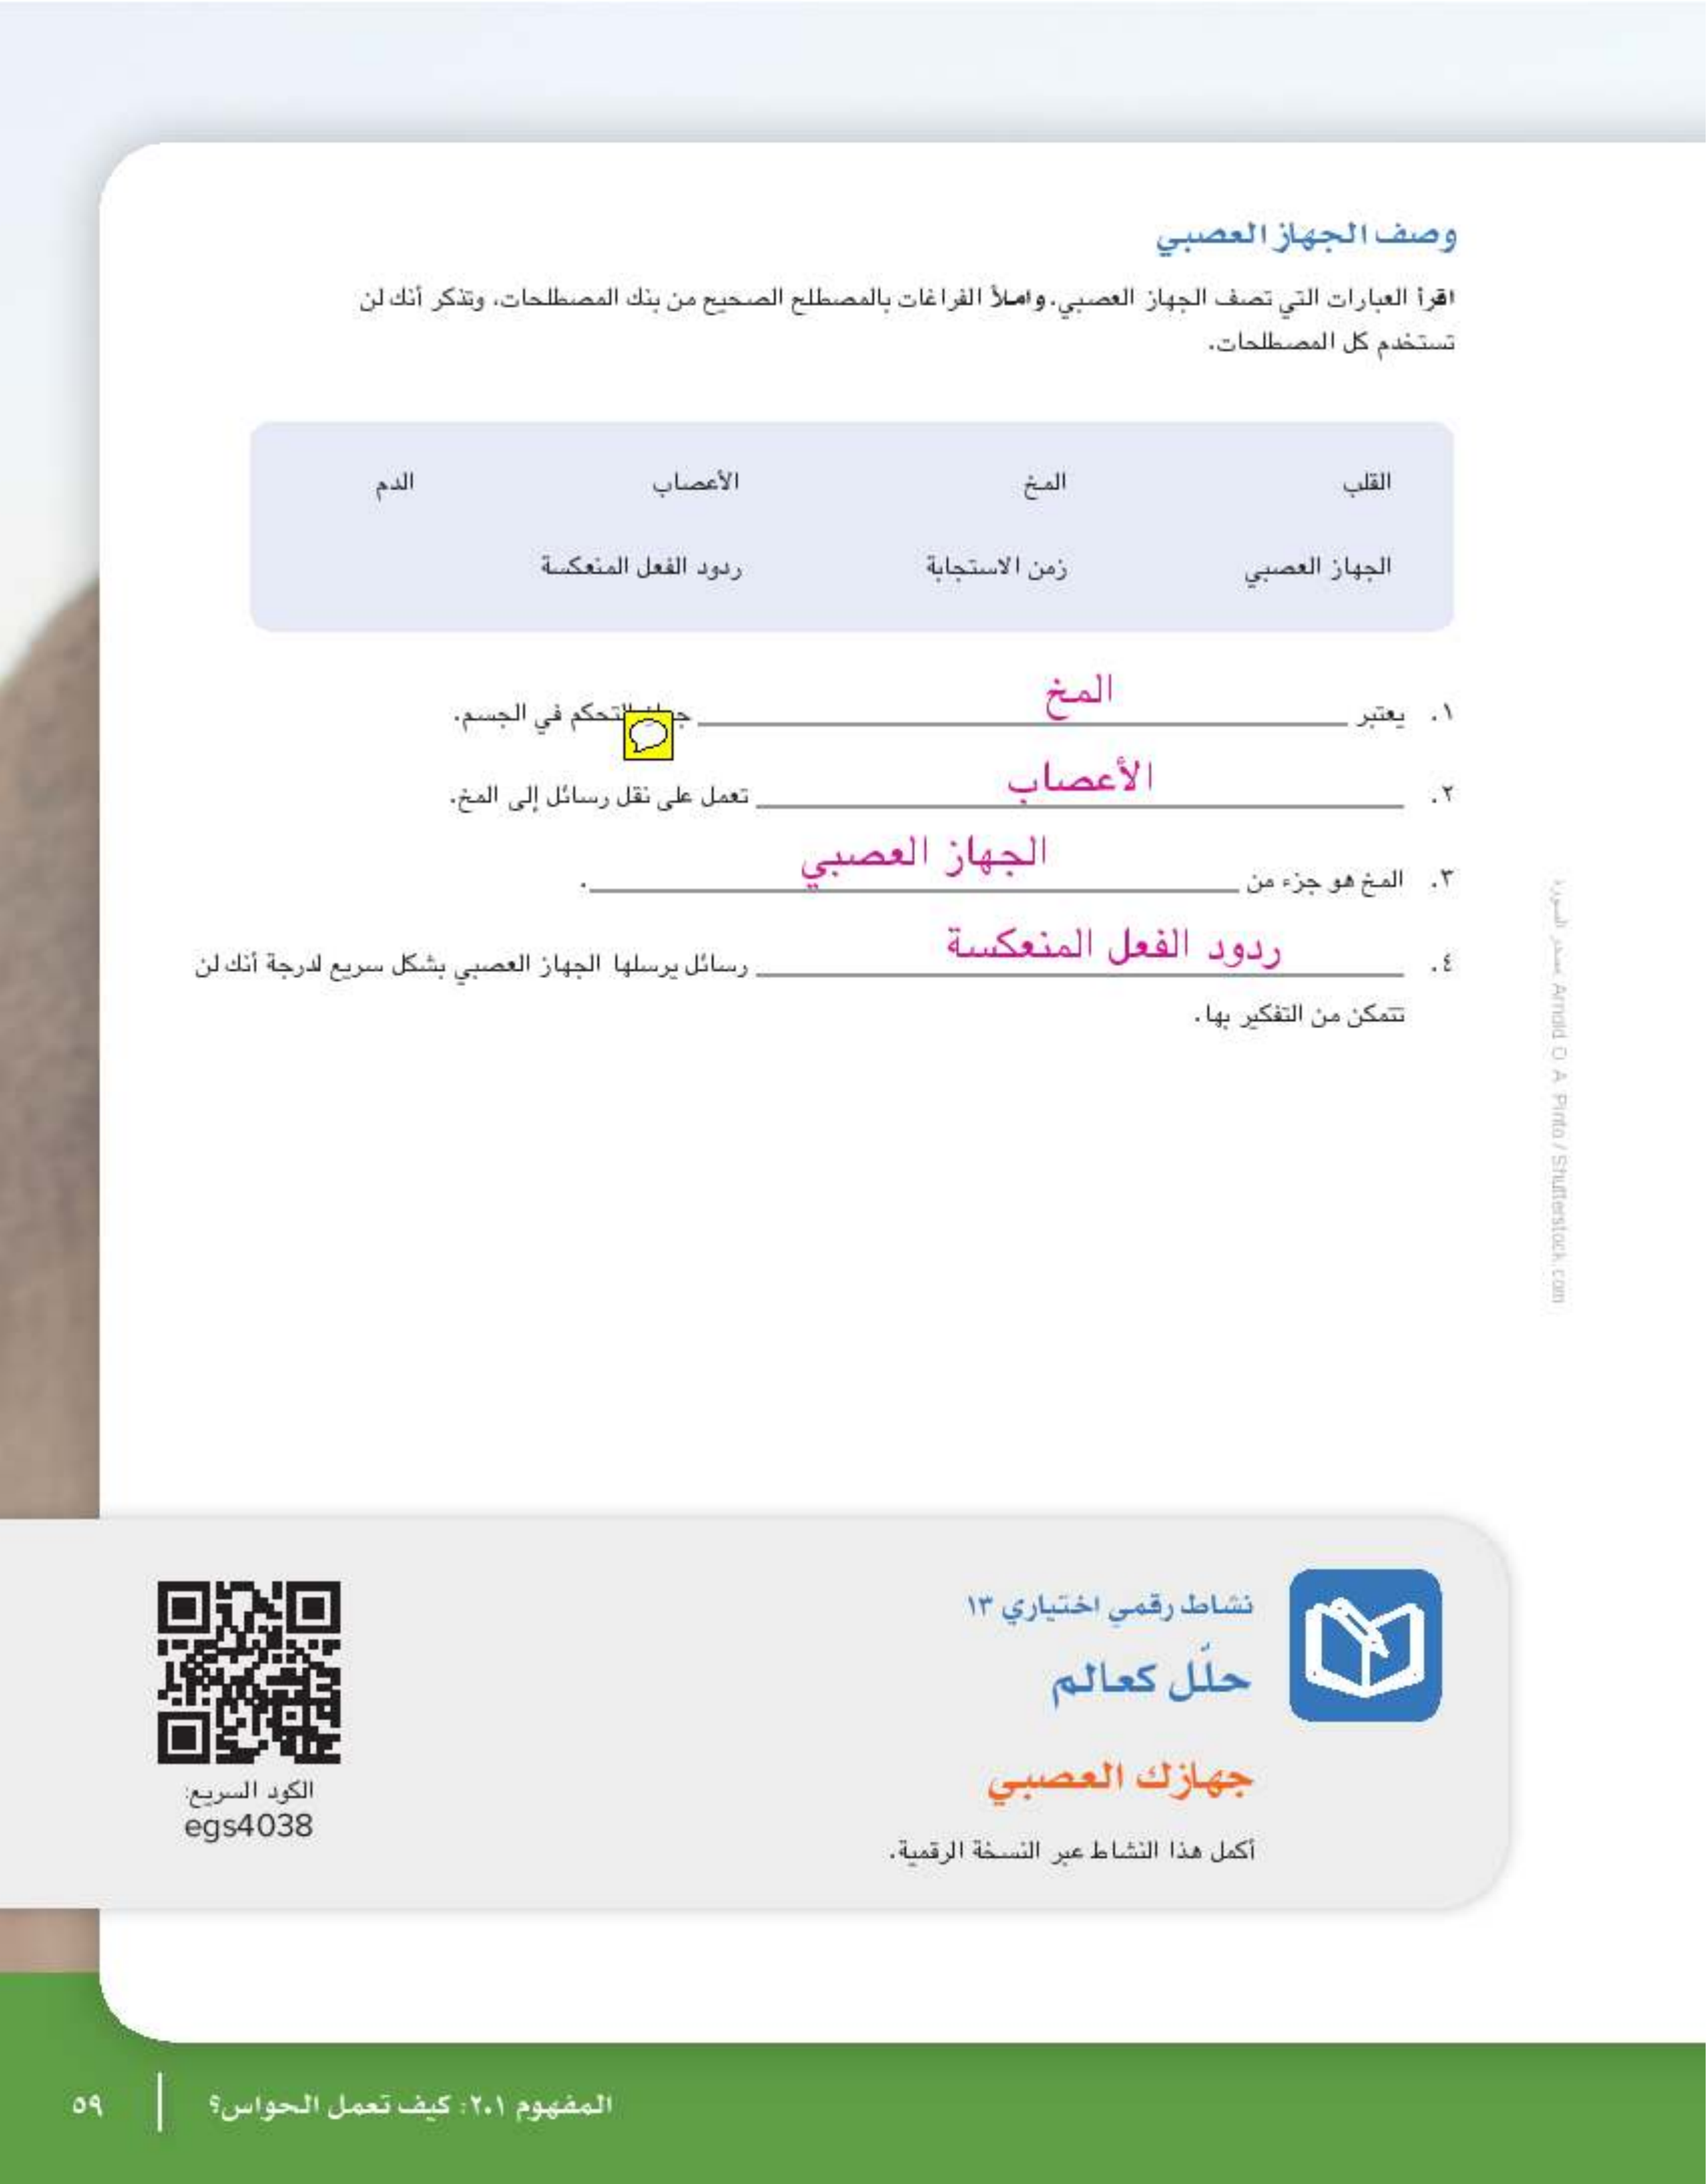 وصف الجهاز العصبي
اقرأ العبارات التي تصف الجهاز العصبي. واملأ الفراغات بالمصطلح الصحيح من بنك المصطلحات، وتذكر أنك لن
تستخدم كل المصطلحات.
القلب المخ الأعصاب الدم
الجهاز العصبي زمن الاستجابة ردود الفعل المنعكسة
١. يعتبر المخ التحكم في الجسم.
٢. الأعصاب تعمل على نقل رسائل إلى المخ.
٣. المخ هو جزء من الجهاز العصبي.
٤. ردود الفعل المنعكسة رسائل يرسلها الجهاز العصبي بشكل سريع لدرجة أنك لن
تتمكن من التفكير بها.
مصدر الصورة: Arnold O. A. Pinto / Shutterstock.com
نشاط رقمي اختياري ١٣
حلّل كعالم
جهازك العصبي
أكمل هذا النشاط عبر النسخة الرقمية.
الكود السريع:
egs4038
المفهوم ٢.١: كيف تعمل الحواس؟ ٥٩